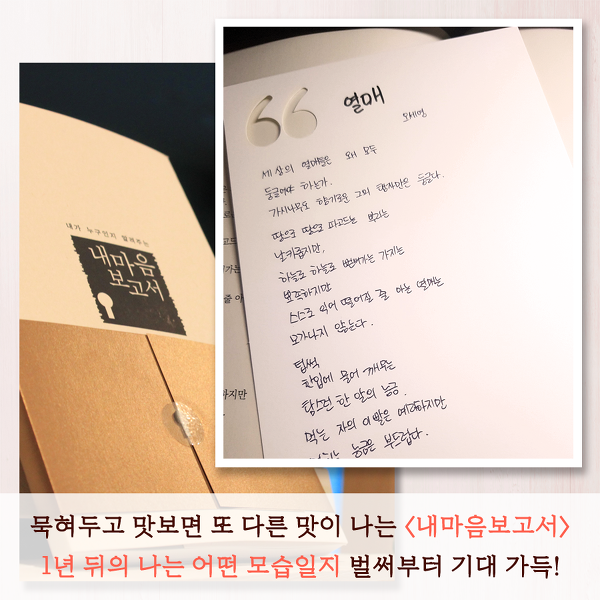 열매
오세영
세상의 열매들은 왜 모두
둥글어야 하는가.
가시나무도 향기로운 그의 탱자만은 둥글다.
땅으로 땅으로 파고드는 뿌리는
날카롭지만,
하늘로 하늘로 뻗어가는 가지는
뾰족하지만
스스로 익어 떨어질 줄 아는 열매는
모가나지 않는다.
덥썩
한입에 물어 깨무는
탐스런 한 알의 능금
먹는 자의 이빨은 예리하지만
능금은 부드럽다.
내가 누구인지 알려주는
내마음
보고서
줄 아
하지만
묵혀두고 맛보면 또 다른 맛이 나는 <내마음보고서>
1년 뒤의 나는 어떤 모습일지 벌써부터 기대 가득!